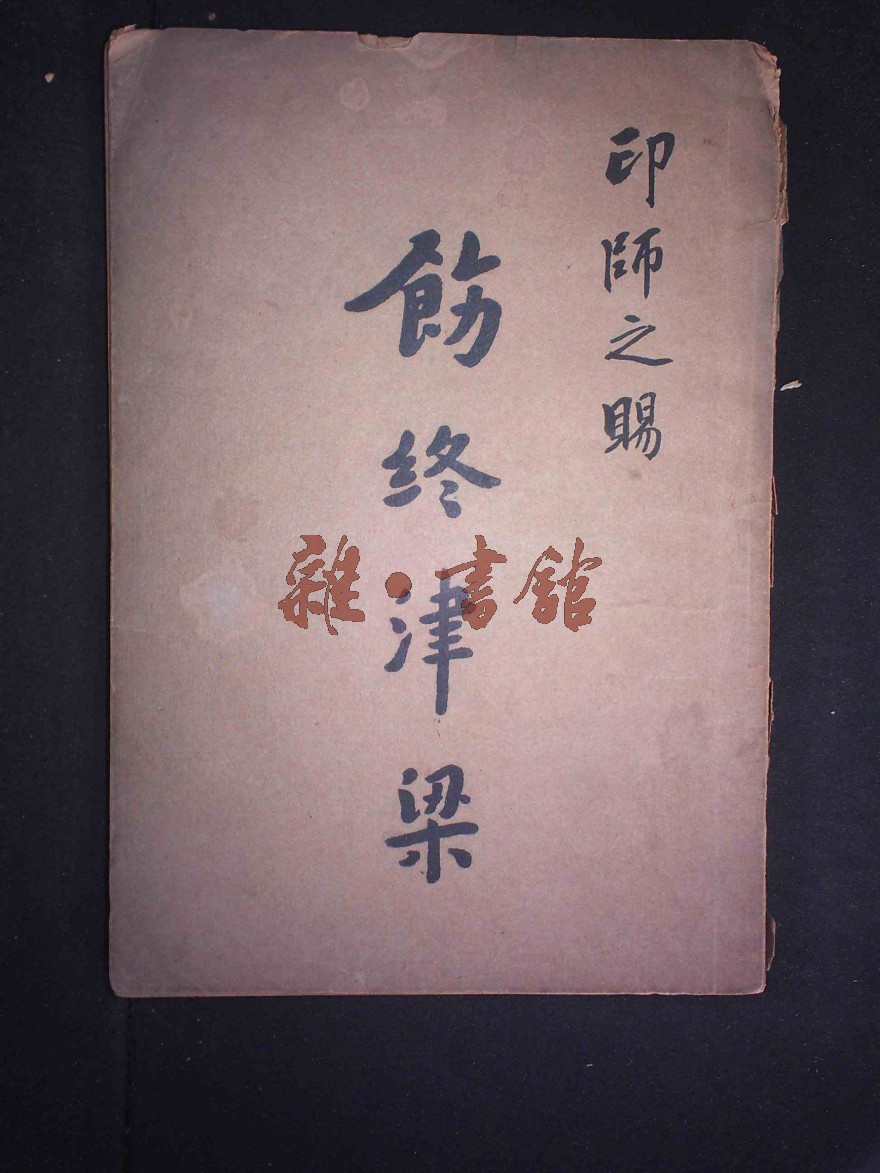 印師之賜
飭終津梁
雜·書館